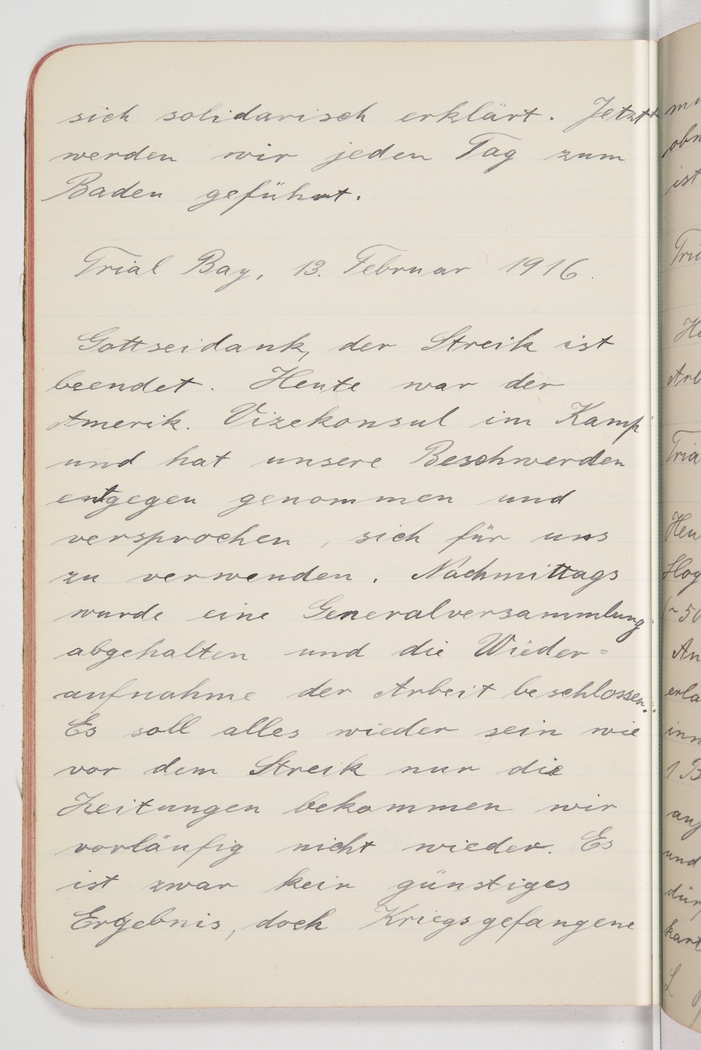 sich solidarisch erklärt. Jetzt
werden wir jeden Tag zum
Baden geführt.
Trial Bay, 13. Februar 1916.
Gottseidank, der Streik ist
beendet. Heute war der
Amerik. Vizekonsul im Kamp
und hat unsere Beschwerden
entgegen genommen und
versprochen, sich für uns
zu verwenden. Nachmittags
wurde eine Generalversammlung
abgehalten und die Wieder=
aufnahme der Arbeit beschlossen.
Es soll alles wieder sein wie
vor dem Streik nur die
Zeitungen bekommen wir
vorläufig nicht wieder. Es
ist zwar kein günstiges
Ergebnis, doch Kriegsgefangene